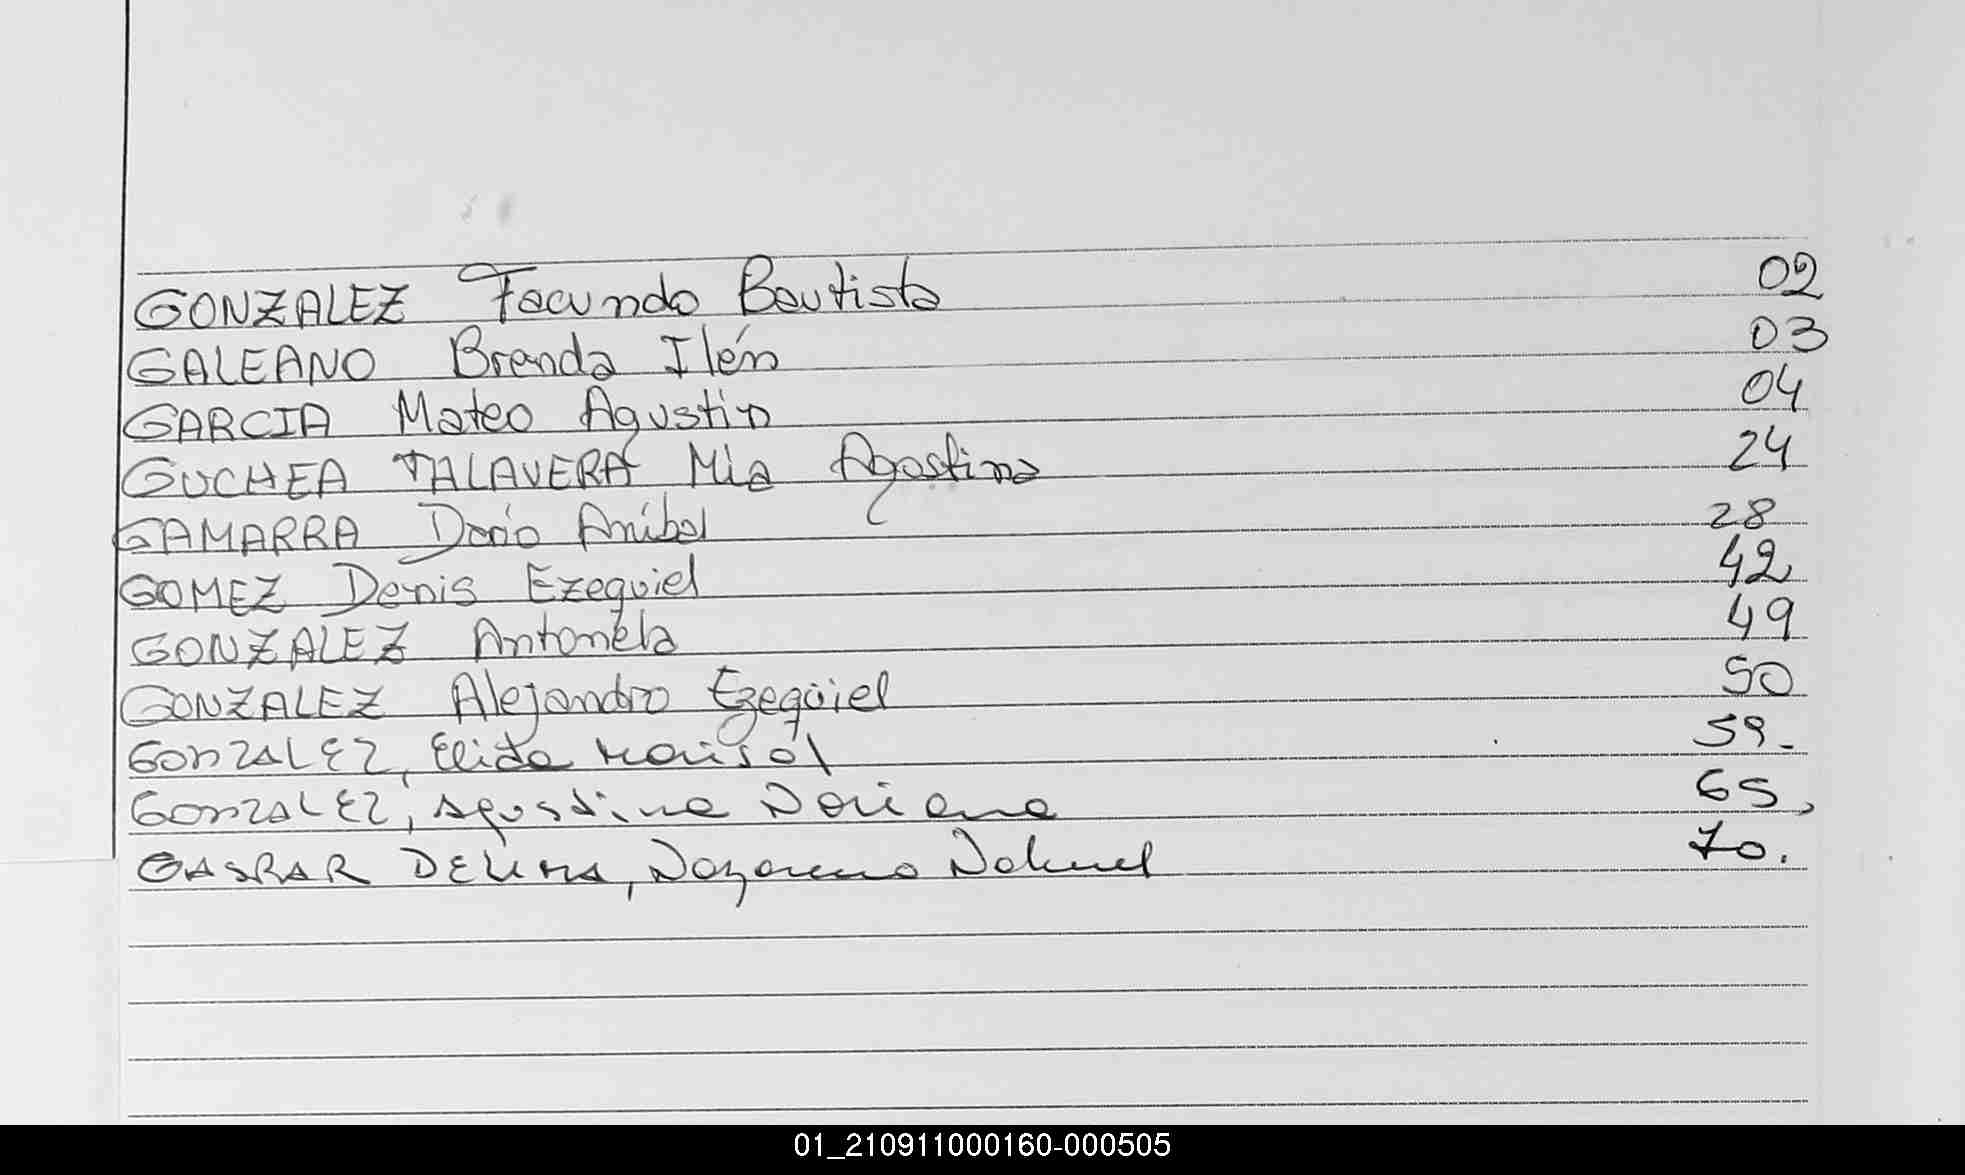 GONZALEZ Facundo Bautista 02
GALEANO Brenda Ilén 03
GARCIA Mateo Agustin 04
GUCHEA TALAVERA Mia Agostina 24
GAMARRA Dario Anibal 28
GOMEZ Denis Ezequiel 42
GONZALEZ Antonela 49
GONZALEZ Alejandro Ezequiel 50
GONZALEZ, Elida Marisol 59.
GONZALEZ, Agostina Doriana 65,
GASPAR DELIMA, Nazareno Nahuel 70.
01_210911000160-000505